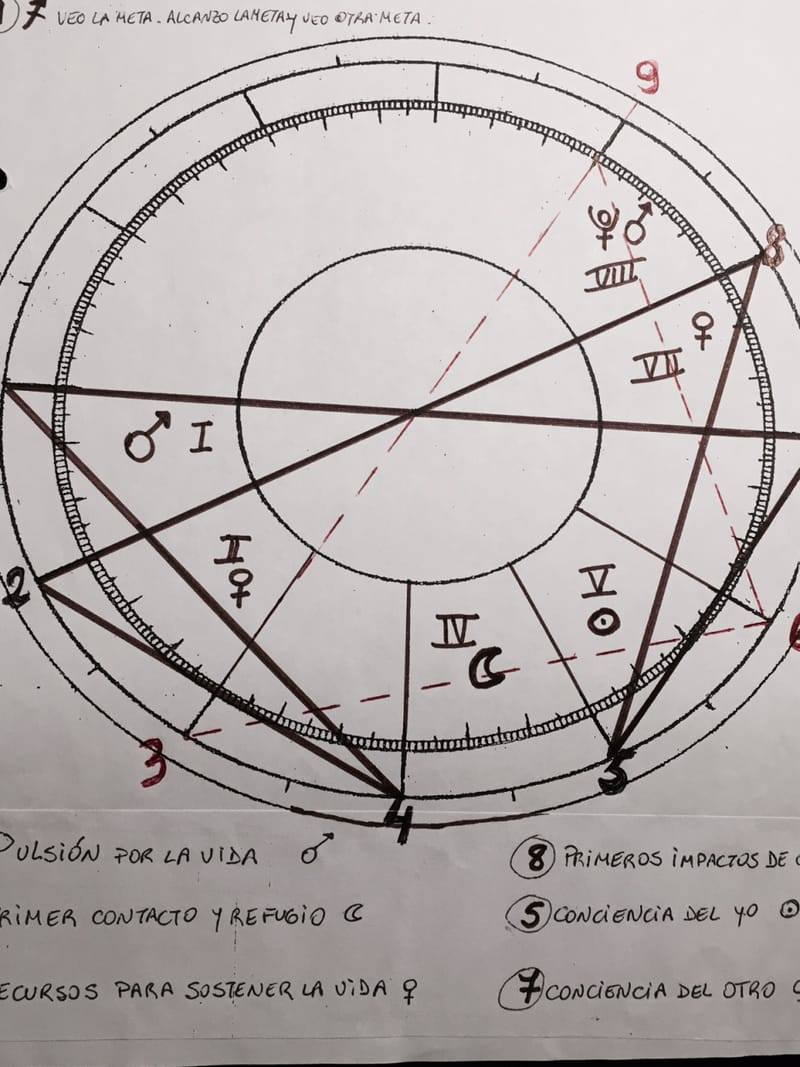 7 VEO LA META. ALCANZO LA META Y VEO OTRA META.
9
♇ ♂
VIII
8
♀
VII
♂ I
II
♀
2
V
☉
IV
☾
6
3
5
4
PULSIÓN POR LA VIDA ♂
8 PRIMEROS IMPACTOS DE
RIMER CONTACTO Y REFUGIO ☾
5 CONCIENCIA DEL YO ☉
ECURSOS PARA SOSTENER LA VIDA ♀
7 CONCIENCIA DEL OTRO ♀